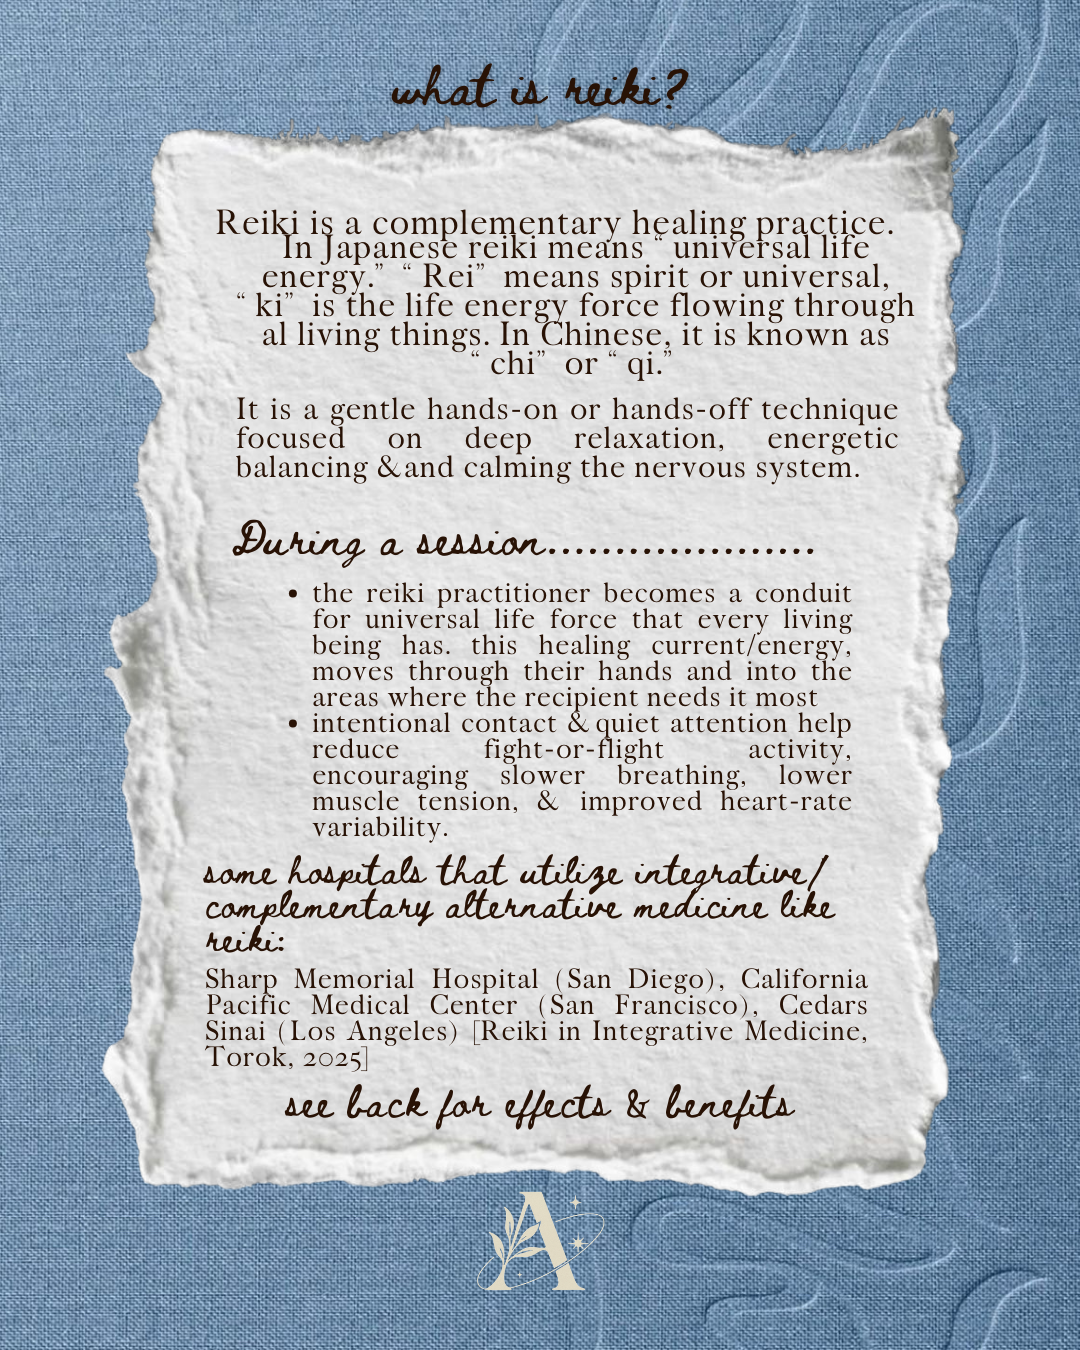 what is reiki?
Reiki is a complementary healing practice.
In Japanese reiki means “ universal life
energy.” “ Rei” means spirit or universal,
“ ki” is the life energy force flowing through
al living things. In Chinese, it is known as
“ chi” or “ qi.”
It is a gentle hands-on or hands-off technique
focused on deep relaxation, energetic
balancing &and calming the nervous system.
During a session....................
• the reiki practitioner becomes a conduit
for universal life force that every living
being has. this healing current/energy,
moves through their hands and into the
areas where the recipient needs it most
• intentional contact & quiet attention help
reduce fight-or-flight activity,
encouraging slower breathing, lower
muscle tension, & improved heart-rate
variability.
some hospitals that utilize integrative/
complementary alternative medicine like
reiki:
Sharp Memorial Hospital (San Diego), California
Pacific Medical Center (San Francisco), Cedars
Sinai (Los Angeles) [Reiki in Integrative Medicine,
Torok, 2025]
see back for effects & benefits
A